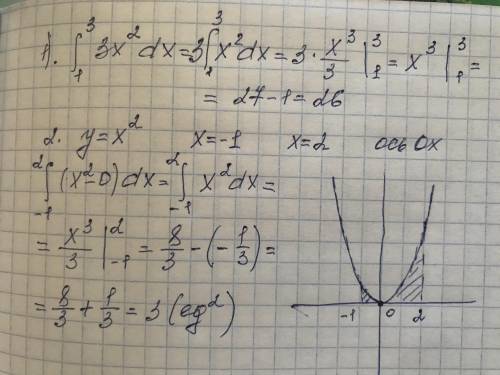 1). ∫₁³ 3x² dx = 3∫₁³ x² dx = 3 · x³/3 |₁³ = x³ |₁³ =
= 27 - 1 = 26
2. y = x² x = -1 x = 2 ось Ox
∫₋₁² (x² - 0) dx = ∫₋₁² x² dx =
= x³/3 |₋₁² = 8/3 - (-1/3) =
= 8/3 + 1/3 = 3 (ед²)
-1 0 2